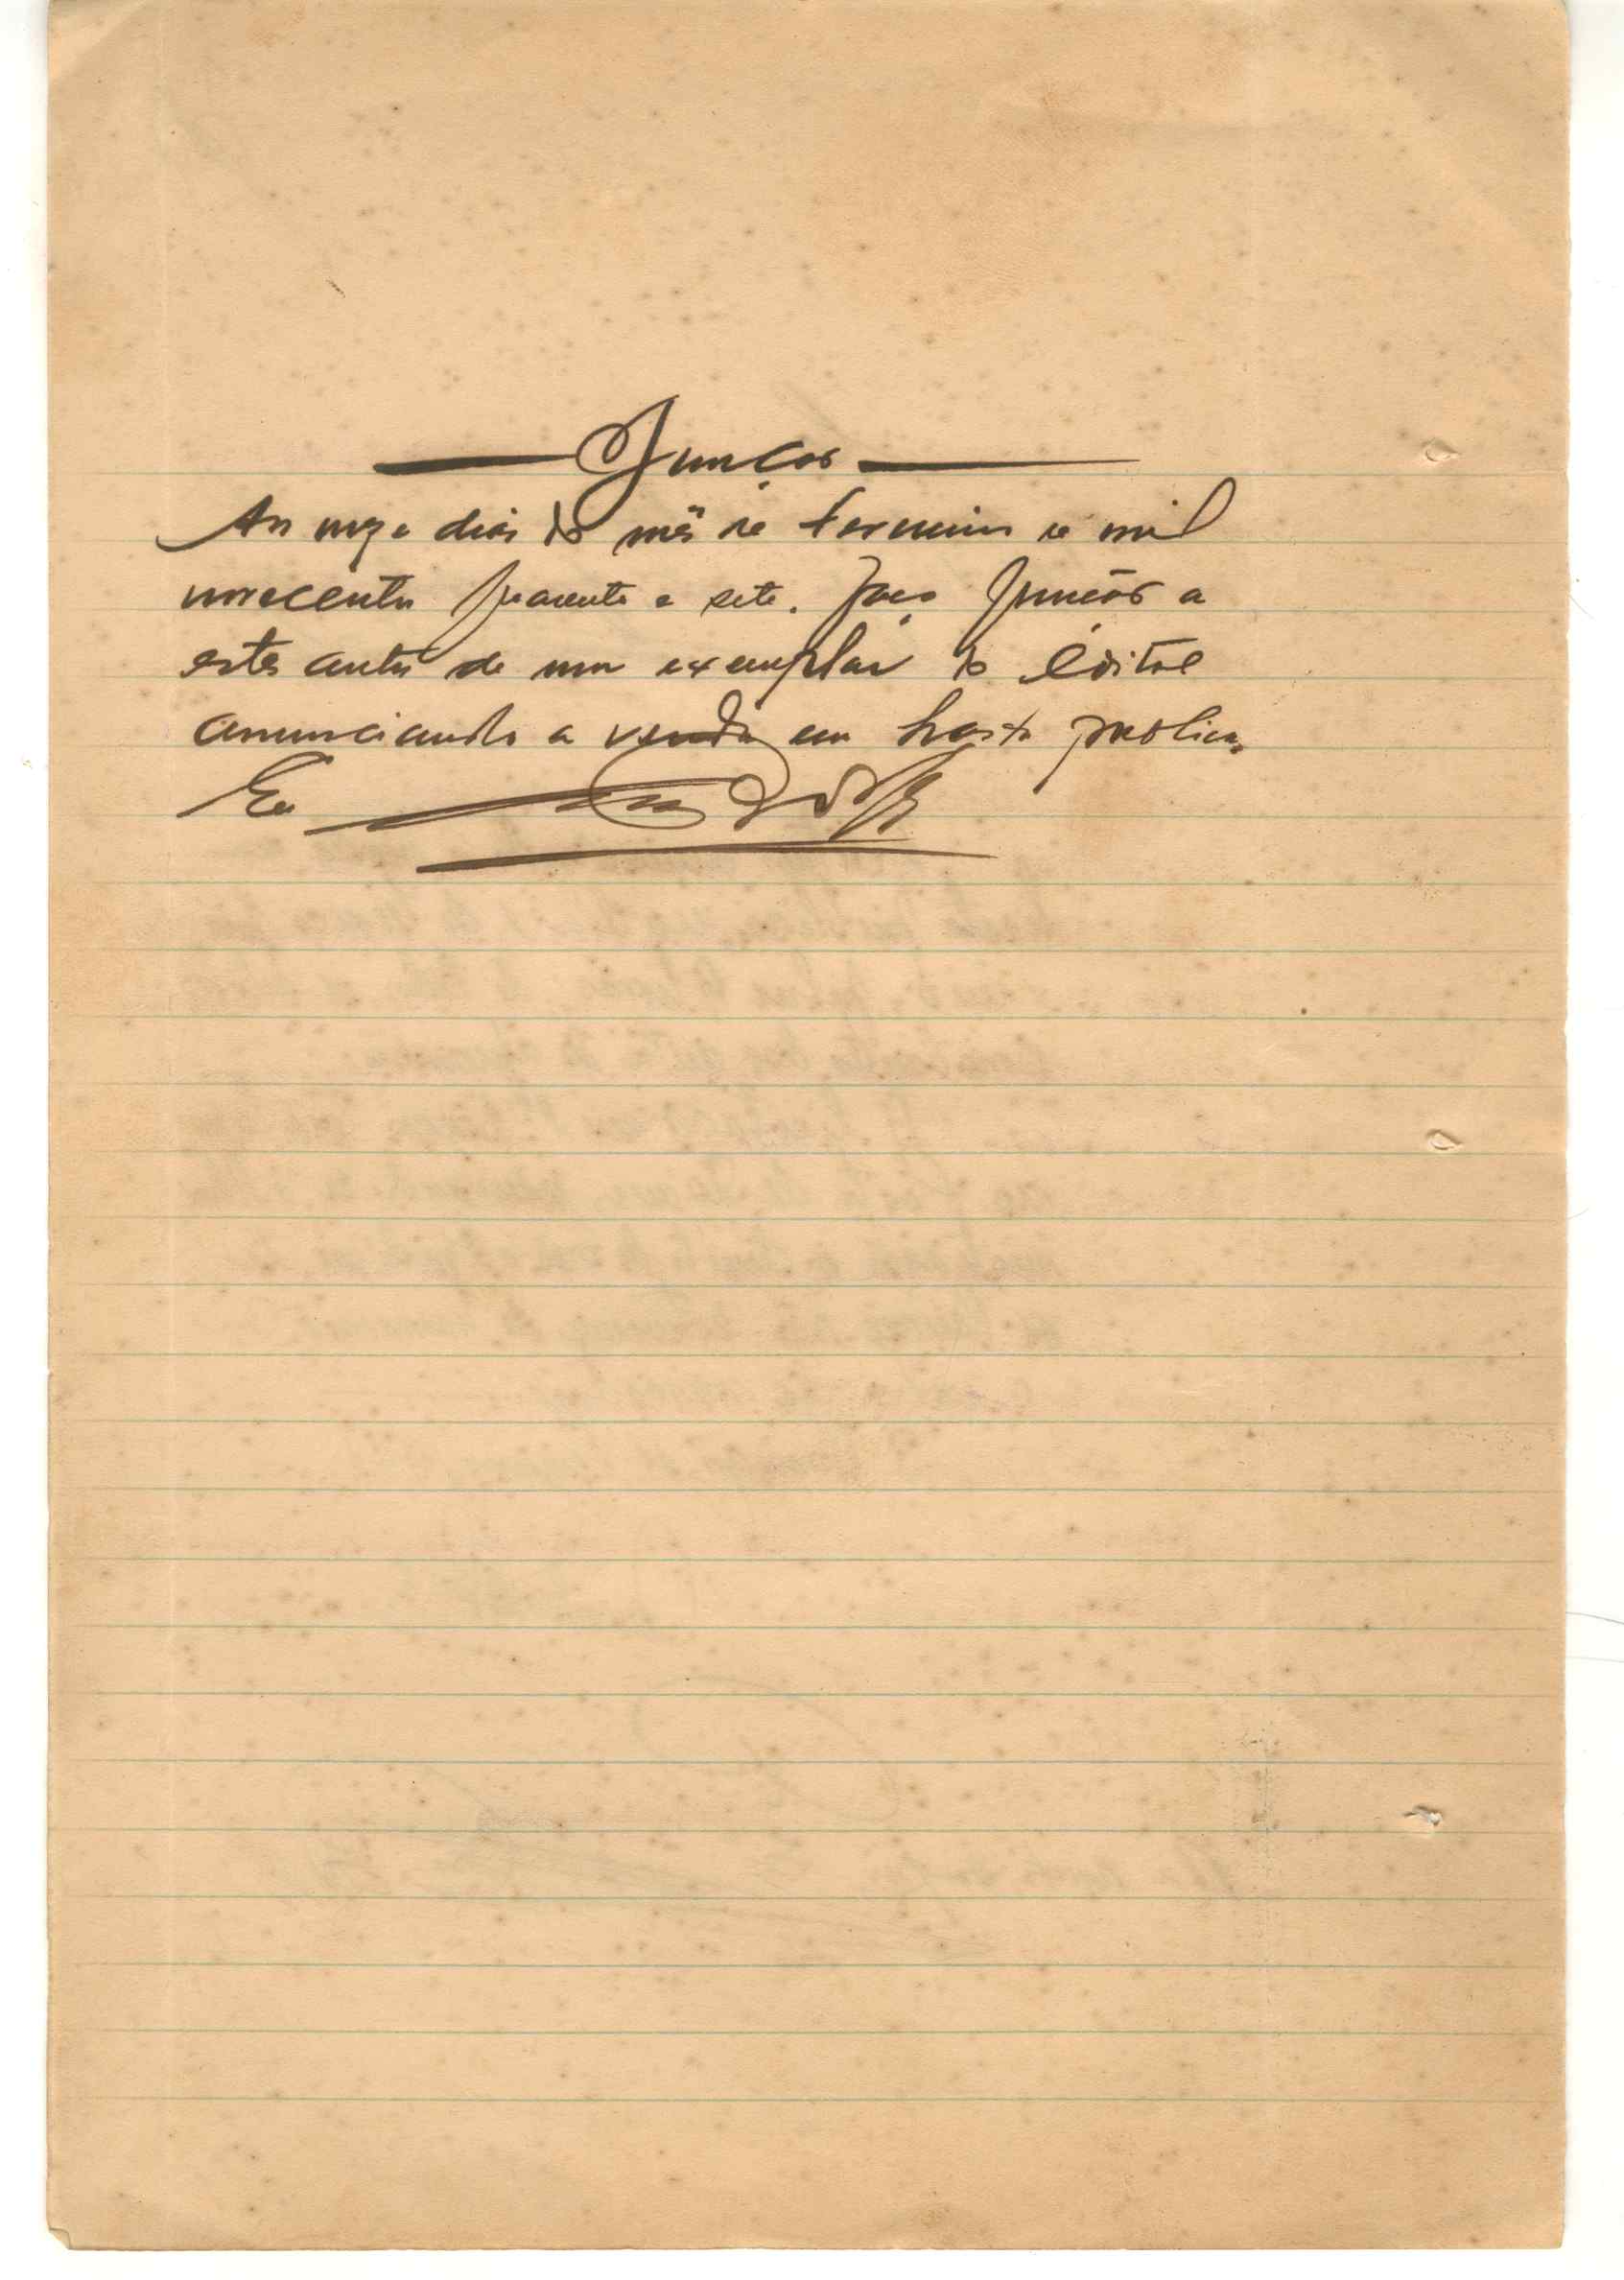 Junção
Aos onze dias do mês de fevereiro de mil
novecentos quarenta e sete. Faço junção a
estes autos de um exemplar do edital
anunciando a venda em hasta publica.
Eu